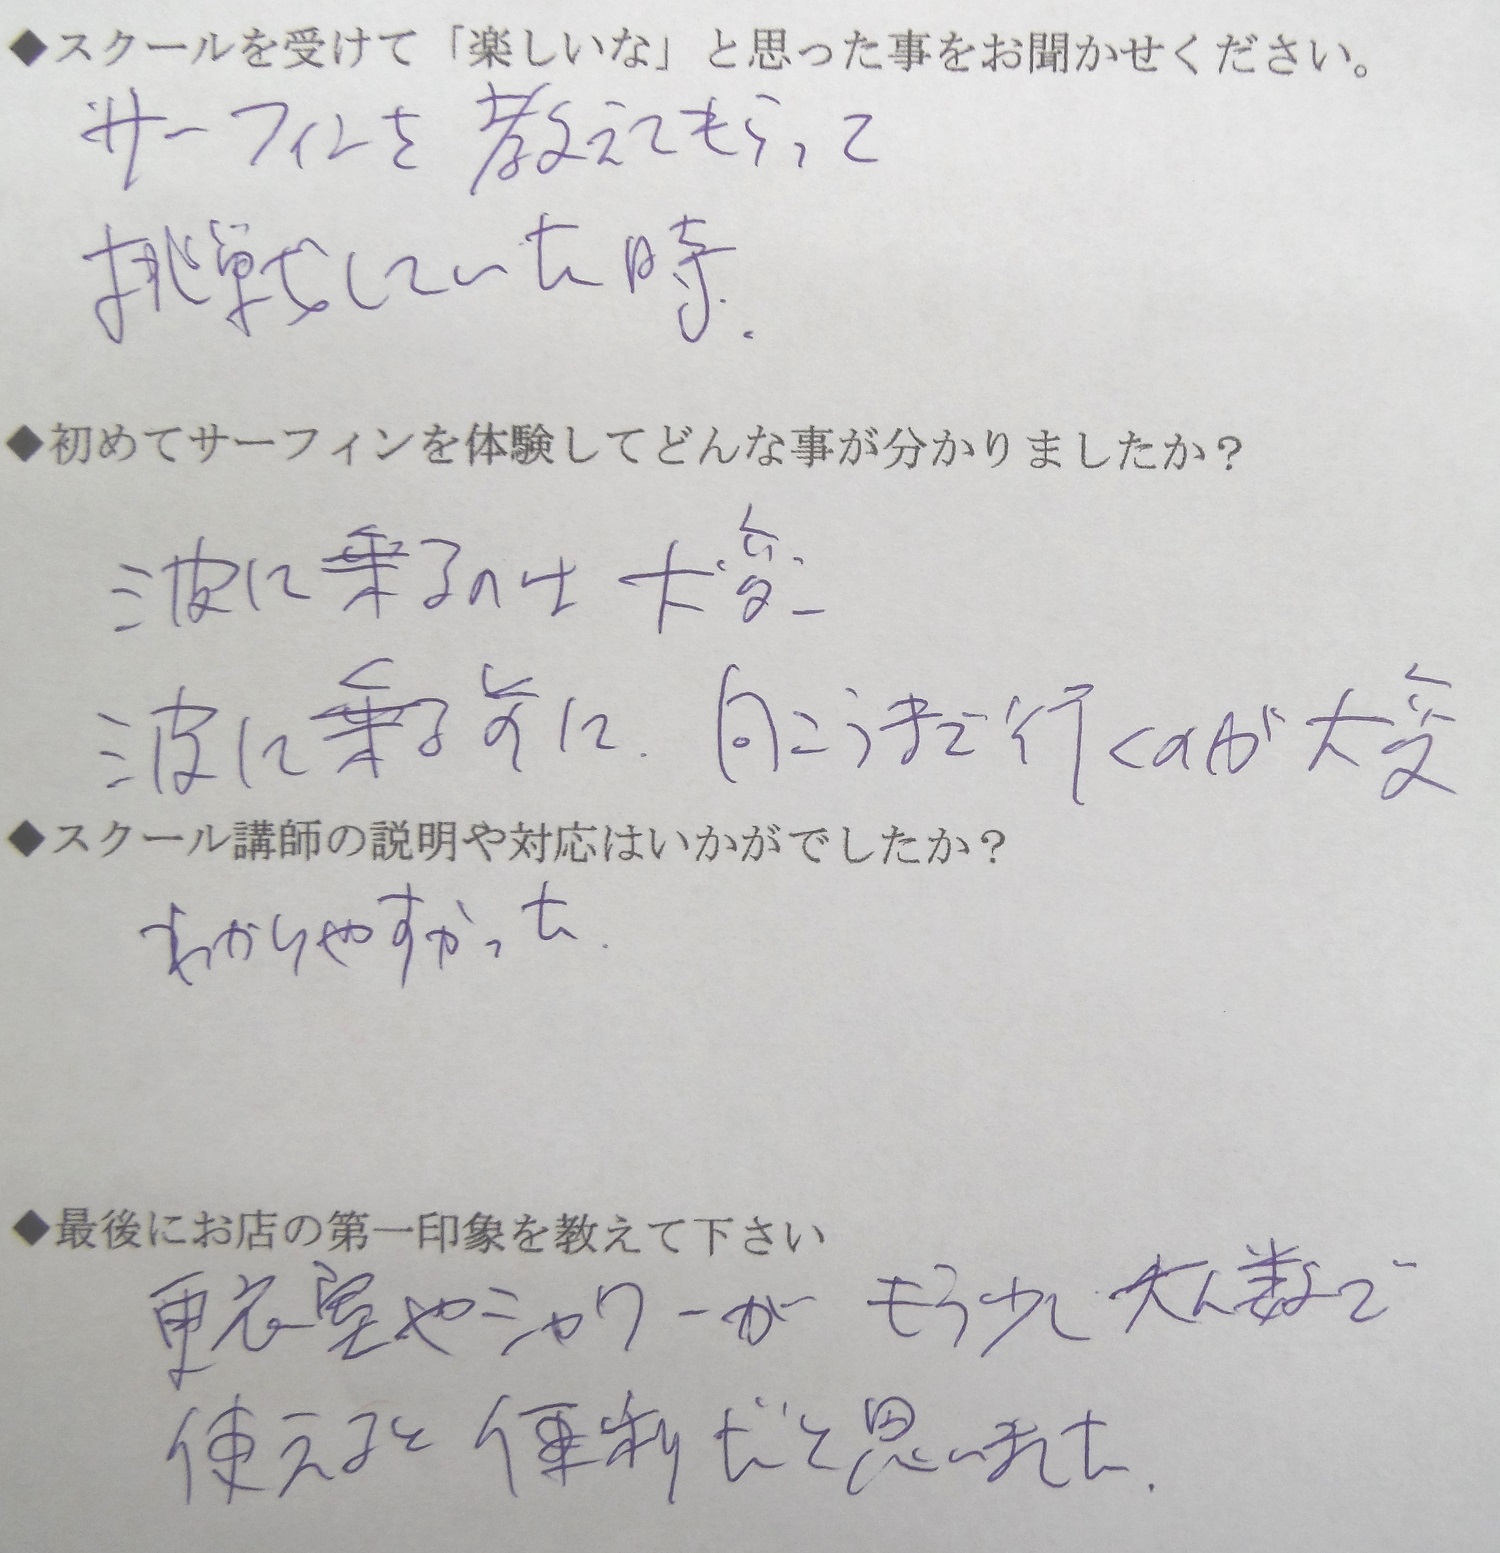 ◆スクールを受けて「楽しいな」と思った事をお聞かせください。
サーフィンを教えてもらって
挑戦していた時.
◆初めてサーフィンを体験してどんな事が分かりましたか？
波に乗るのは大変
波に乗る前に、向こうまで行くのが大変
◆スクール講師の説明や対応はいかがでしたか？
わかりやすかった.
◆最後にお店の第一印象を教えて下さい
更衣室やシャワーがもう少し大人数で
使えると便利だと思いました.